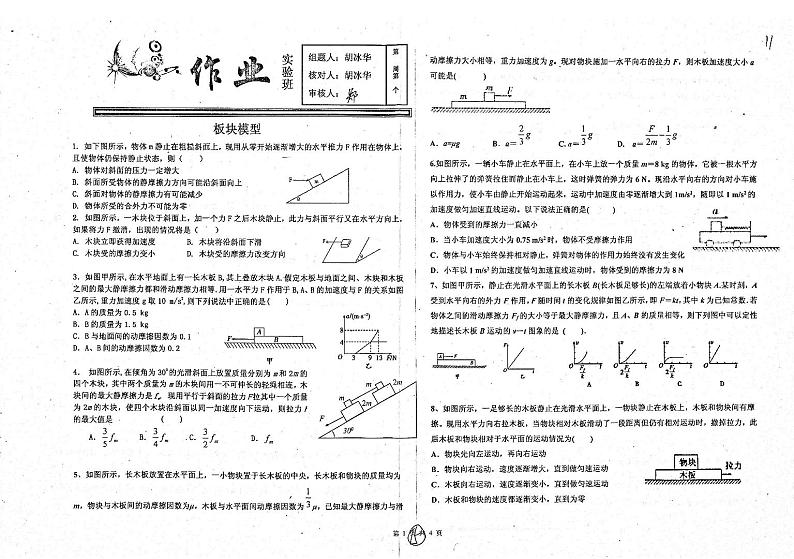 作业
实验班
组题人：胡冰华
核对人：胡冰华
审核人：
第
周第
个
板块模型
1. 如下图所示，物体m静止在粗糙斜面上，现用从零开始逐渐增大的水平推力F作用在物体上，
且使物体仍保持静止状态，则（ ）
A. 物体对斜面的压力一定增大
B. 斜面所受物体的静摩擦力方向可能沿斜面向上
C. 斜面对物体的静摩擦力有可能减少
D. 物体所受的合外力不可能为零
2. 如图所示，一木块位于斜面上，加一个力F之后木块静止，此力与斜面平行又在水平方向上，
如果将力F撤消，出现的情况将是（ ）
A. 木块立即获得加速度 B. 木块将沿斜面下滑
C. 木块受的摩擦力变小 D. 木块受的摩擦力改变方向
3. 如图甲所示，在水平地面上有一长木板B，其上叠放木块A.假定木板与地面之间、木块和木板
之间的最大静摩擦力都和滑动摩擦力相等.用一水平力F作用于B，A、B的加速度与F的关系如图
乙所示，重力加速度g取10 m/s²，则下列说法中正确的是（ ）
A. A的质量为0.5 kg
B. B的质量为1.5 kg
C. B与地面间的动摩擦因数为0.1
D. A、B间的动摩擦因数为0.2
A
B
F
甲
a/(m·s⁻²)
8
4
0 3 9 13 F/N
乙
4. 如图所示，在倾角为30°的光滑斜面上放置质量分别为m和2m的
四个木块，其中两个质量为m的木块间用一不可伸长的轻绳相连，木
块间的最大静摩擦力是fm。现用平行于斜面的拉力F拉其中一个质量
为2m的木块，使四个木块沿斜面以同一加速度向下运动，则拉力F
的最大值是 （ ）
A. 3/5 fm B. 3/4 fm C. 3/2 fm D. fm
m
2m
m
2m
F
30°
5、如图所示，长木板放置在水平面上，一小物块置于长木板的中央，长木板和物块的质量均为
m，物块与木板间的动摩擦因数为μ，木板与水平面间动摩擦因数为1/3 μ，已知最大静摩擦力与滑
动摩擦力大小相等，重力加速度为g。现对物块施加一水平向右的拉力F，则木板加速度大小a
可能是( )
m
m
F
A．a=μg B．a=2/3 g C．a=1/3 g D．a=F/2m-1/3 g
6.如图所示，一辆小车静止在水平面上，在小车上放一个质量m＝8 kg的物体，它被一根水平方
向上拉伸了的弹簧拉住而静止在小车上，这时弹簧的弹力为6 N。现沿水平向右的方向对小车施
以作用力，使小车由静止开始运动起来，运动中加速度由零逐渐增大到1m/s²，随即以1 m/s²的
加速度做匀加速直线运动。以下说法正确的是( )
A．物体受到的摩擦力一直减小
B．当小车加速度大小为0.75 m/s²时，物体不受摩擦力作用
C．物体与小车始终保持相对静止，弹簧对物体的作用力始终没有发生变化
D．小车以1 m/s²的加速度做匀加速直线运动时，物体受到的摩擦力为8 N
a
7、如图所示，静止在光滑水平面上的长木板B(长木板足够长)的左端放着小物块A.某时刻，A
受到水平向右的外力F作用，F随时间t的变化规律如图乙所示，即F＝kt，其中k为已知常数．若
物体之间的滑动摩擦力Ff的大小等于最大静摩擦力，且A、B的质量相等，则下列图中可以定性
地描述长木板B运动的v－t图象的是（ ）.
甲 乙 A B C D
8、如图所示，一足够长的木板静止在光滑水平面上，一物块静止在木板上，木板和物块间有摩
擦。现用水平力向右拉木板，当物块相对木板滑动了一段距离但仍有相对运动时，撤掉拉力，此
后木板和物块相对于水平面的运动情况为( )
A．物块先向左运动，再向右运动
B．物块向右运动，速度逐渐增大，直到做匀速运动
C．木板向右运动，速度逐渐变小，直到做匀速运动
D．木板和物块的速度都逐渐变小，直到为零
物块
木板
拉力
4 页